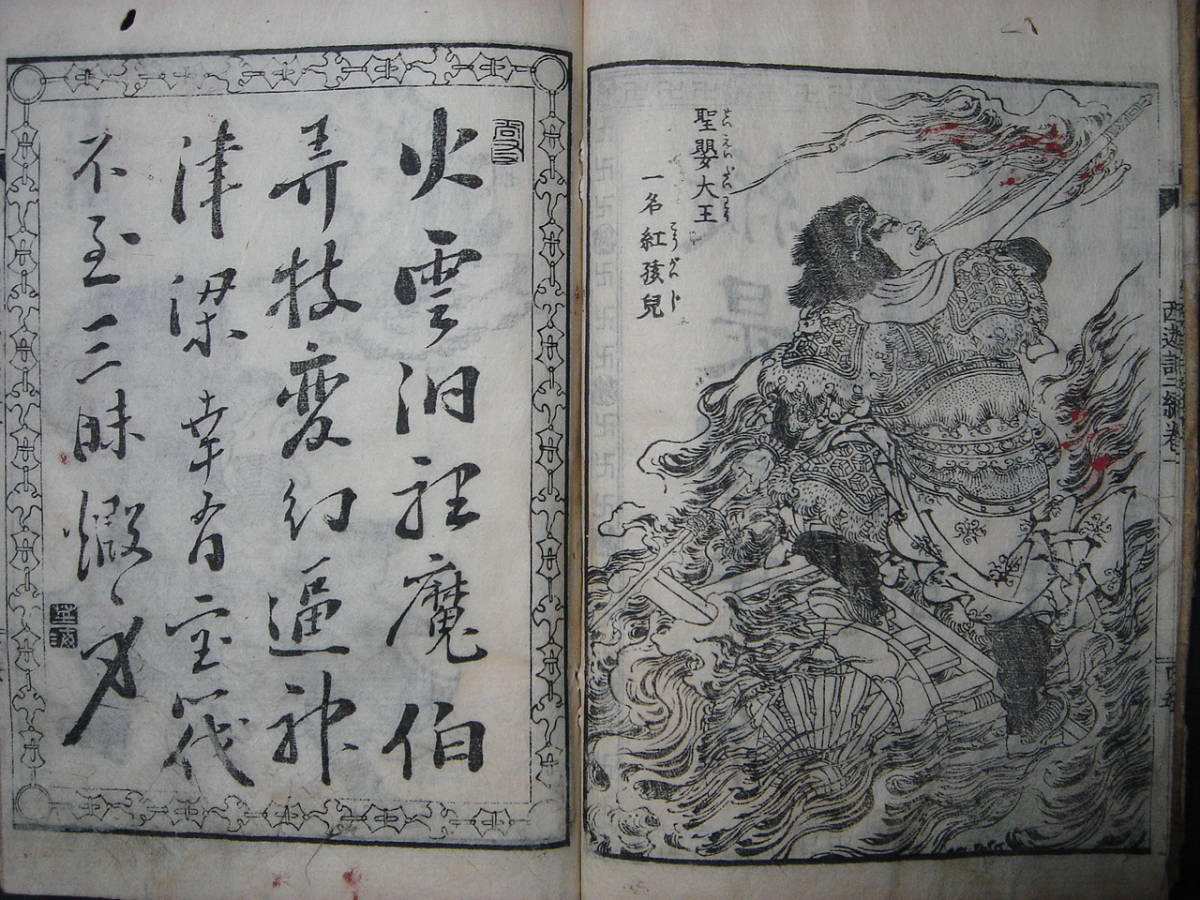 西遊記二編卷一
聖嬰大王
せいえいだいわう
一名紅孩兒
こうがいじ
火雲洞裡魔伯
弄技変幻逼神
津梁幸有宝筏
不至三昧燬身